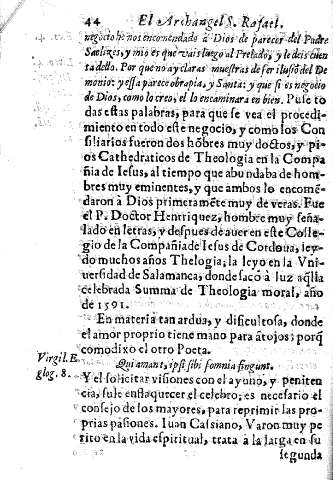 44 El Archangel S. Rafael.
negocio he nos encomendado à Dios de parecer del Padre
Saelizes, y mio es que vais luego al Prelado, y le deis cuen
ta dello. Por que no ay claras muestras de ser ilusiõ del De
monio: y essa parece obra pia, y Santa: y que si es negocio
de Dios, como lo creo, el lo encaminara en bien. Puse to
das estas palabras, para que se vea el procedi-
miento en todo este negocio, y como los Con
siliarios fueron dos hõbres muy doctos, y pi-
os Cathedraticos de Theologia en la Compa
ñia de Iesus, al tiempo que abundaba de hom-
bres muy eminentes, y que ambos lo encomẽ-
daron à Dios primeramẽte muy de veras. Fue
el P. Doctor Henriquez, hombre muy seña-
lado en letras, y despues de auer en este Colle-
gio de la Compañia de Iesus de Cordoua, ley-
do muchos años Thelogia; la leyo en la Vni-
uersidad de Salamanca, donde sacò à luz aq̃lla
celebrada Summa de Theologia moral, año
de 1591.
En materia tan ardua, y dificultosa, donde
el amor proprio tiene mano para ãtojos; porq̃
como dixo el otro Poeta.
Virgil. E
glog. 8.
Qui amant, ipsi sibi somnia fingunt.
Y el solicitar visiones con el ayuno, y peniten
cia, suele enflaquecer el celebro; es necesario el
consejo de los mayores, para reprimir las pro-
prias pasiones. Iuan Cassiano, Varon muy pe
rito en la vida espiritual, trata à la larga en su
segunda